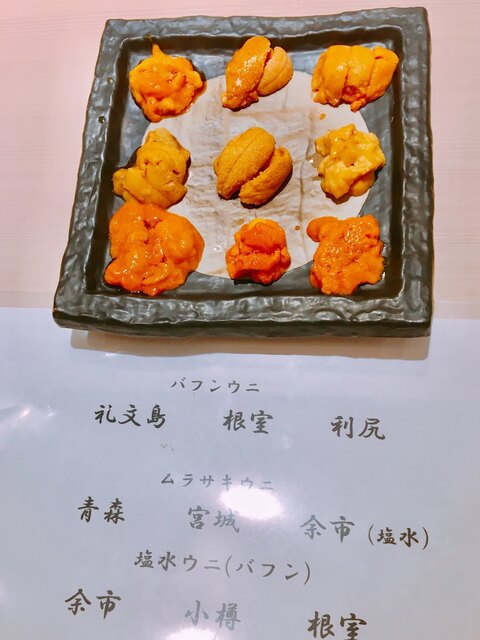 バフンウニ
礼文島 根室 利尻
ムラサキウニ
青森 宮城 余市(塩水)
塩水ウニ(バフン)
余市 小樽 根室